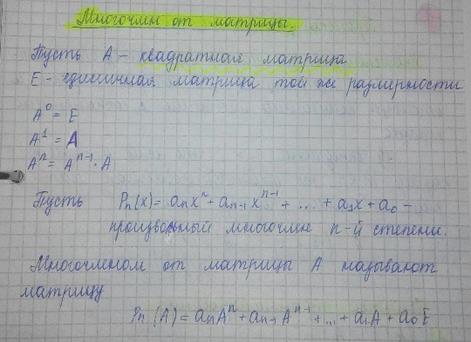 Многочлен от матрицы.
Пусть A - квадратная матрица
E - единичная матрица той же размерности
A⁰ = E
A¹ = A
Aⁿ = Aⁿ⁻¹ · A
Пусть Pₙ(x) = aₙxⁿ + aₙ₋₁xⁿ⁻¹ + ... + a₁x + a₀ -
произвольный многочлен n-й степени.
Многочленом от матрицы A называют
матрицу
Pₙ(A) = aₙAⁿ + aₙ₋₁Aⁿ⁻¹ + ... + a₁A + a₀E